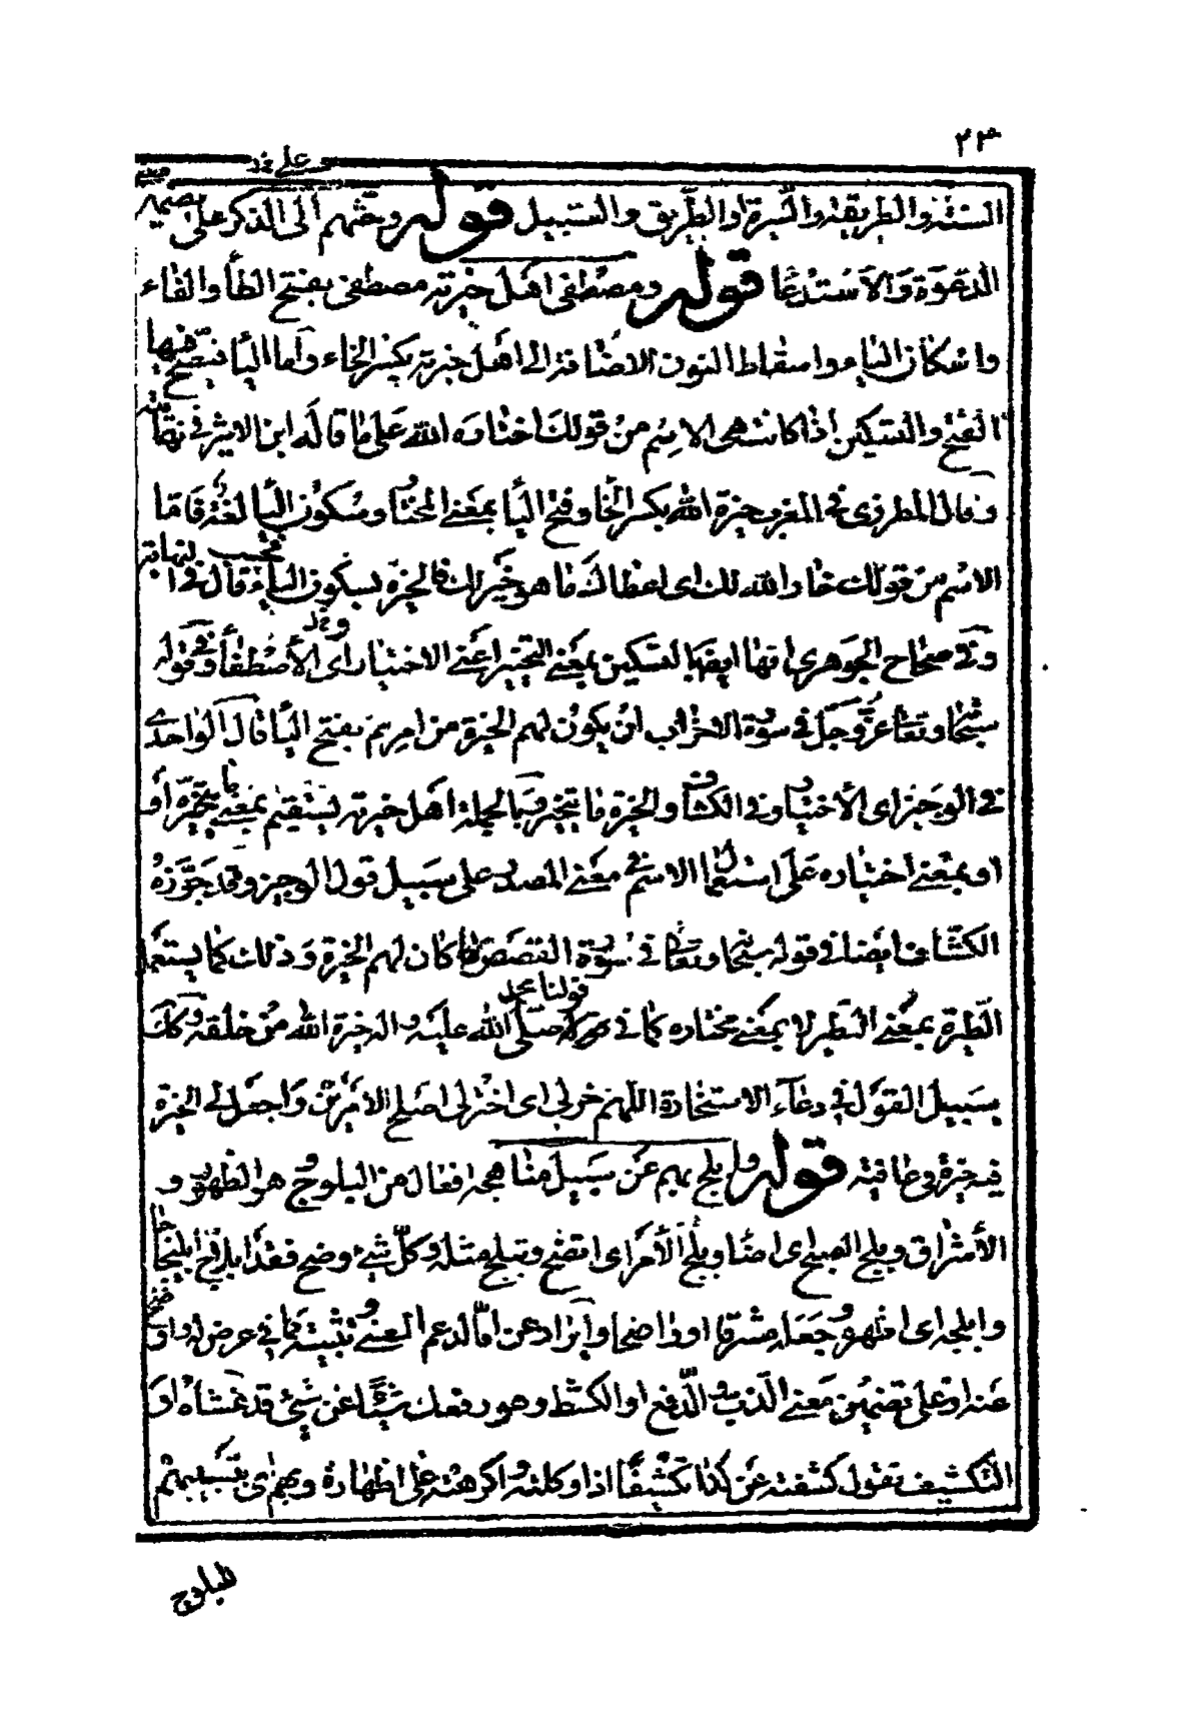 ٢٣
السنة والطريقة والسيرة او الطريق والسبيل قوله وحثهم الى الذكر على
الدعوة والاستدعا قوله ومصطفى اهل خيرته مصطفى بفتح الطأ والفاء
واسكان الياء واسقاط النون الاضافة الى اهل خيرته بكسر الخاء واما اليا فيصح فيها
الفتح والتسكين اذا كانت هى الاسم من قولك اختاره الله على ما قاله ابن الاثير فى نهايته
وقال المطرزى فى المغرب خيرة الله بكسر الخا وفتح اليأ بمعنى المختار وسكون اليأ لغة فاما
الاسم من قولك خار الله لك اى اعطاك ما هو خير لك فالخيرة بسكون الياء قال فى النهاية
وفى صحاح الجوهرى انها ايضا بالتسكين بمعنى التخير اعنى الاختيار اى الأصطفأ وفى قوله
سبحانه وتعالى عز وجل فى سورة الاحزاب ان يكون لهم الخيرة من امرهم بفتح اليأ قال الواحدى
فى الوجيز اى الأختيار وفى الكشاف والخيرة ما يتخير وبالجملة اهل خيرته يستقيم بمعنى ما يتخيره او
او بمعنى اختياره على استعمال الاسم فى معنى المصدر على سبيل قول الوجيز وقد جوزه
الكشاف ايضا فى قوله سبحانه وتعالى فى سورة القصص ما كان لهم الخيرة وذلك كما يستعمل
الطيرة بمعنى التطير لا بمعنى مختاره كما فى قولنا محمد صلى الله عليه واله خيرة الله من خلقه وكك
سبيل القول فى دعآء الاستخارة اللهم خر لى اى اختر لى اصلح الامرين واجعل لى الخيرة
فيه خيرة فى عافية قوله وابلج بهم عن سبيل مناهجه افعال من البلوج هو الظهور و
الأشراق وبلج الصبح اى اضاء وبلج الأمر اى اتضح وتبلج مثله وكل شئ وضح فقد ابلاج ابليجاجا
وابلجه اى اظهره وجعله مشرقا او واضحا وايراد عن اما لدعم المعنى وتثبيته كما فى عرض له واوضح
عنه او على تضمين معنى الذب والدفع او الكشط وهو رفعك شيئا عن شئ قد غشاه او
التكشيف تقول كشفته عن كذا تكشيفا اذا وكلته واكرهته على اظهاره وبهم اى بتسبيبهم
للبلوج